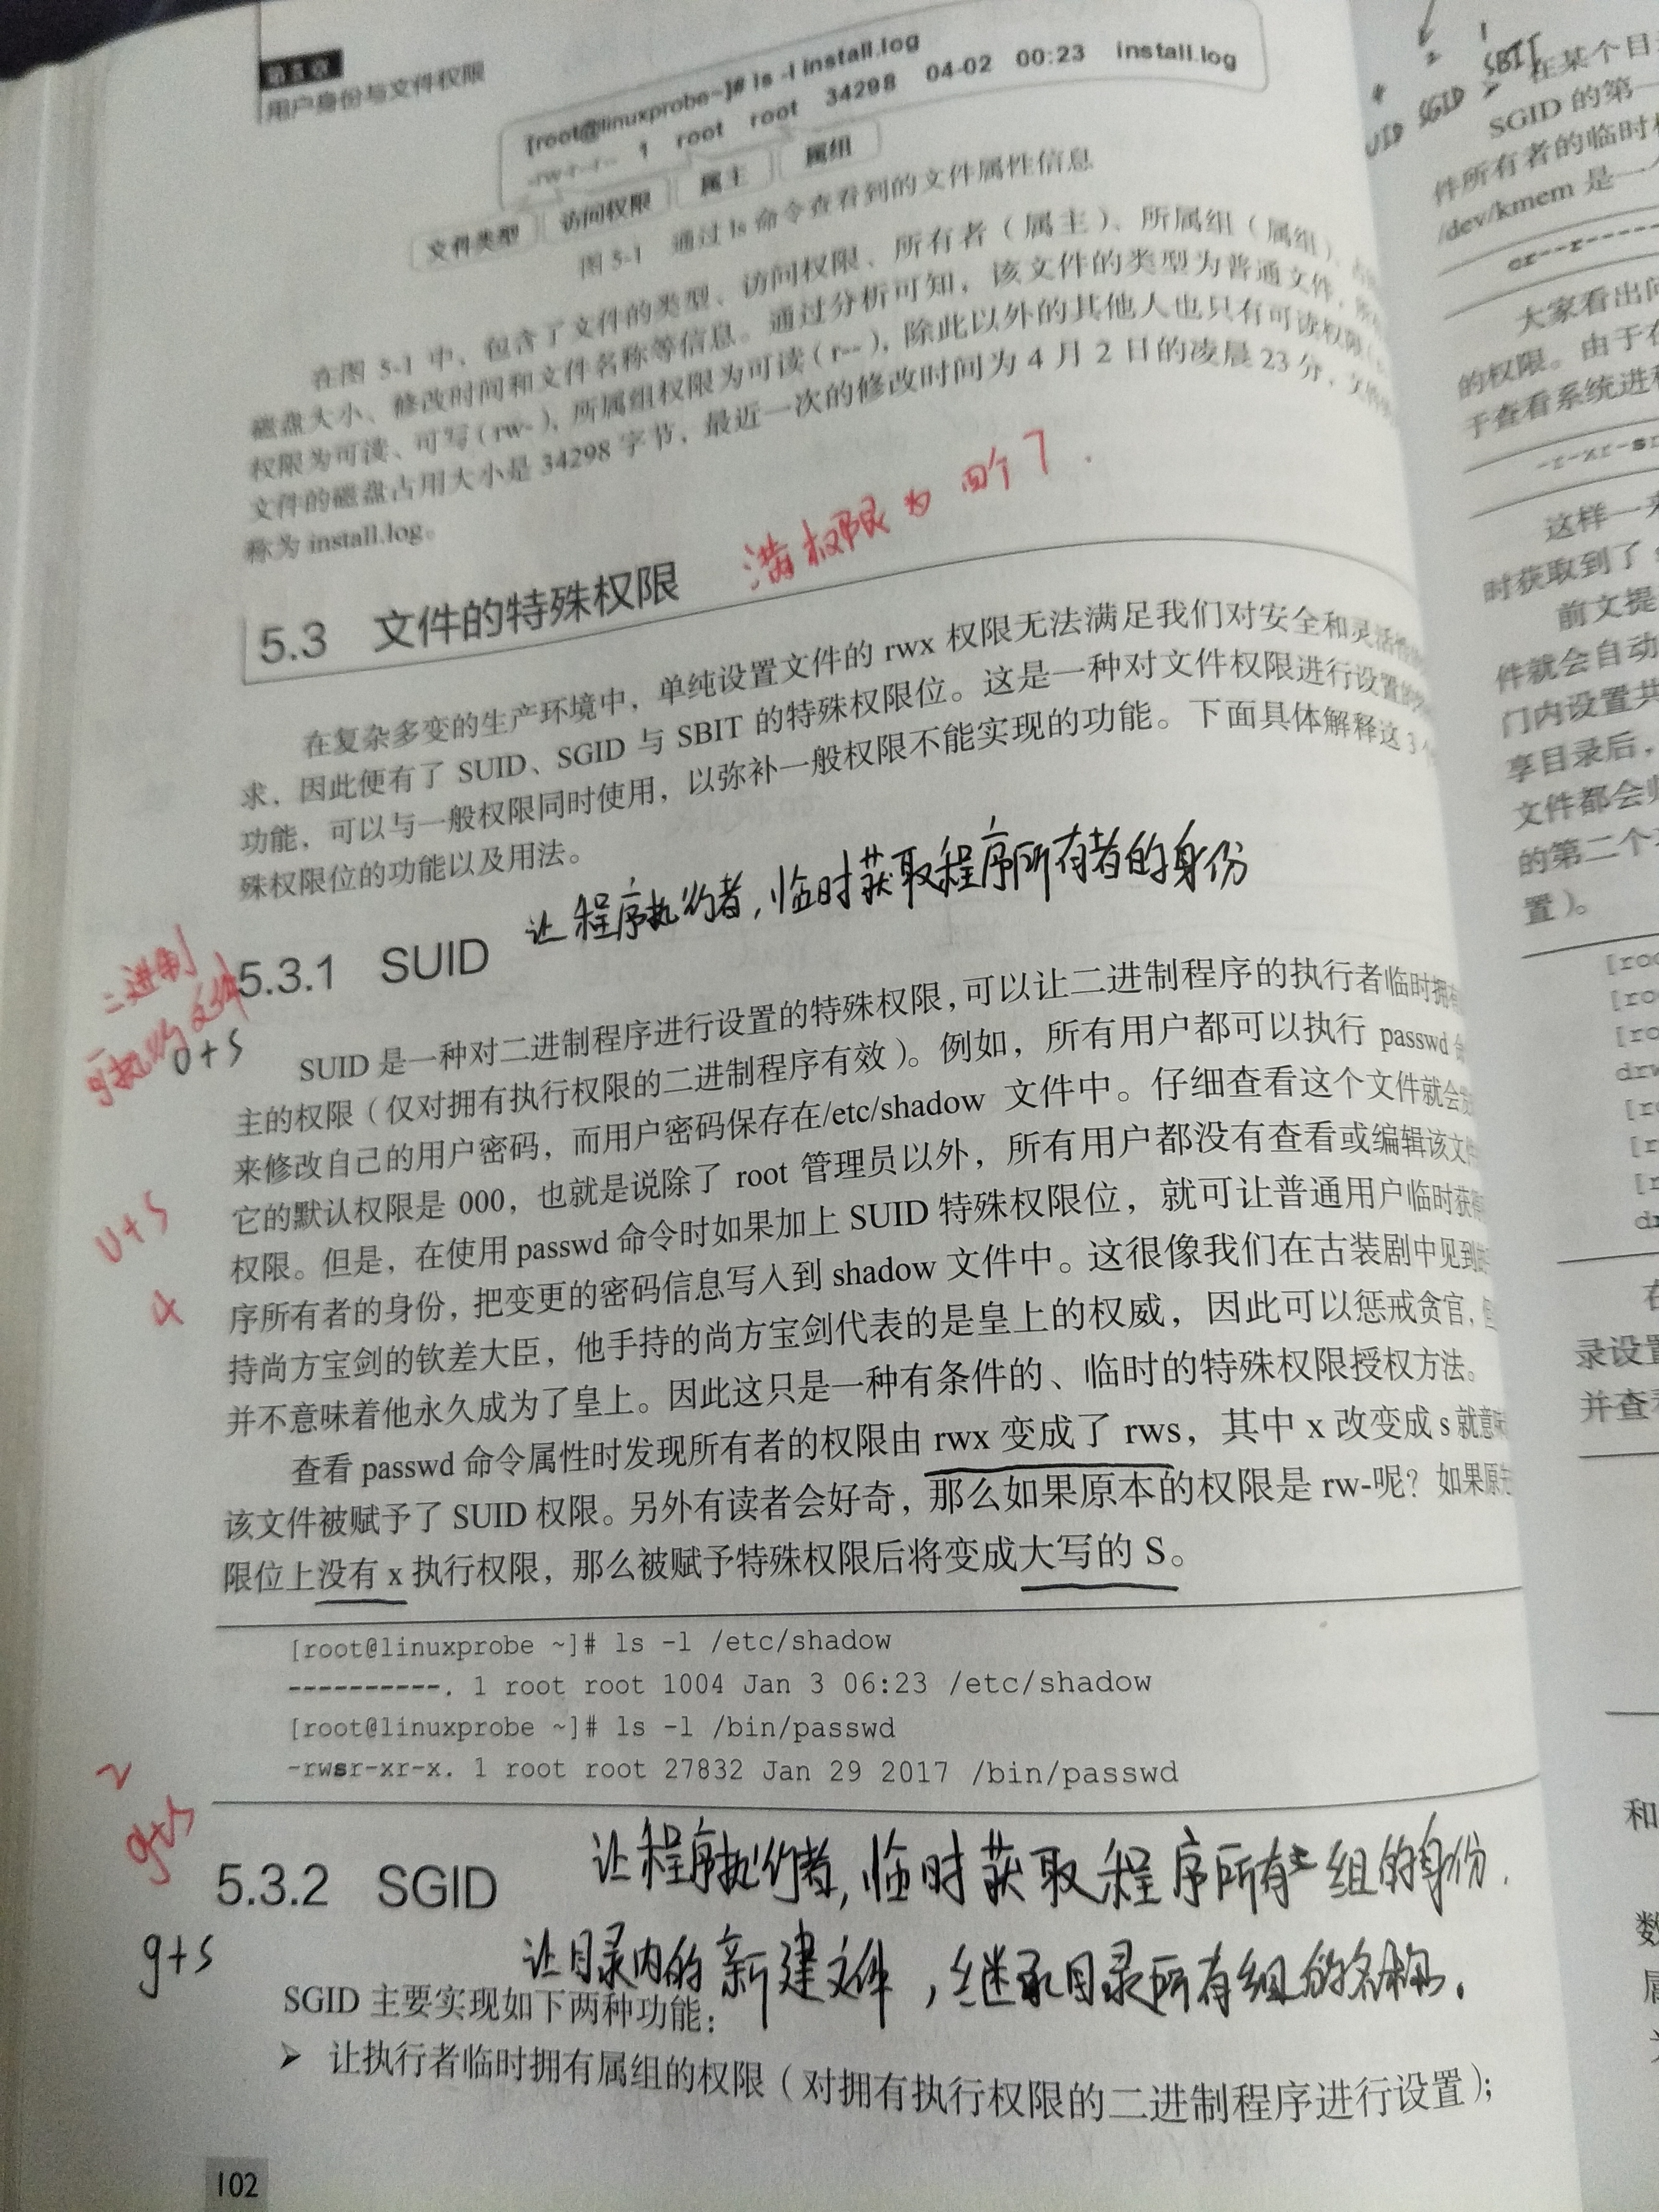 第5章
用户身份与文件权限
[root@linuxprobe~]# ls -l install.log
-rw-r--r-- 1 root root 34298 04-02 00:23 install.log
文件类型 访问权限 属主 属组
图 5-1 通过 ls 命令查看到的文件属性信息
在图 5-1 中，包含了文件的类型、访问权限、所有者（属主）、所属组（属组）、
磁盘大小、修改时间和文件名称等信息。通过分析可知，该文件的类型为普通文件，
权限为可读、可写（rw-），所属组权限为可读（r--），除此以外的其他人也只有可读权限
文件的磁盘占用大小是 34298 字节，最近一次的修改时间为 4 月 2 日的凌晨 23 分，
称为 install.log。
满权限为 四个 7.
5.3 文件的特殊权限
在复杂多变的生产环境中，单纯设置文件的 rwx 权限无法满足我们对安全和灵活性
求，因此便有了 SUID、SGID 与 SBIT 的特殊权限位。这是一种对文件权限进行设置的
功能，可以与一般权限同时使用，以弥补一般权限不能实现的功能。下面具体解释这 3
殊权限位的功能以及用法。
让程序执行者，临时获取程序所有者的身份
5.3.1 SUID
二进制
可执行文件
o+s
SUID 是一种对二进制程序进行设置的特殊权限，可以让二进制程序的执行者临时拥
主的权限（仅对拥有执行权限的二进制程序有效）。例如，所有用户都可以执行 passwd
来修改自己的用户密码，而用户密码保存在/etc/shadow 文件中。仔细查看这个文件就会
它的默认权限是 000，也就是说除了 root 管理员以外，所有用户都没有查看或编辑该文件
u+s
权限。但是，在使用 passwd 命令时如果加上 SUID 特殊权限位，就可让普通用户临时获
4
序所有者的身份，把变更的密码信息写入到 shadow 文件中。这很像我们在古装剧中见到
持尚方宝剑的钦差大臣，他手持的尚方宝剑代表的是皇上的权威，因此可以惩戒贪官，
并不意味着他永久成为了皇上。因此这只是一种有条件的、临时的特殊权限授权方法。
查看 passwd 命令属性时发现所有者的权限由 rwx 变成了 rws，其中 x 改变成 s 就意
该文件被赋予了 SUID 权限。另外有读者会好奇，那么如果原本的权限是 rw-呢？如果原
限位上没有 x 执行权限，那么被赋予特殊权限后将变成大写的 S。
[root@linuxprobe ~]# ls -l /etc/shadow
----------. 1 root root 1004 Jan 3 06:23 /etc/shadow
[root@linuxprobe ~]# ls -l /bin/passwd
-rwsr-xr-x. 1 root root 27832 Jan 29 2017 /bin/passwd
2
g+s
让程序执行者，临时获取程序所有 组的身份.
5.3.2 SGID
让目录内的新建文件，继承目录所有组的名称.
g+s
SGID 主要实现如下两种功能：
➤ 让执行者临时拥有属组的权限（对拥有执行权限的二进制程序进行设置）；
102
SUID SGID SBIT
在某个目
SGID 的第一
件所有者的临时
/dev/kmem 是一
cr--r-----
大家看出
的权限。由于在
于查看系统进
-r-xr-sr
这样一来
时获取到了
前文提
件就会自动
门内设置共
享目录后，
文件都会
的第二个
置）。
[roo
[ro
[ro
drw
[r
[r
[r
d
在
录设置
并查看
和
数
属